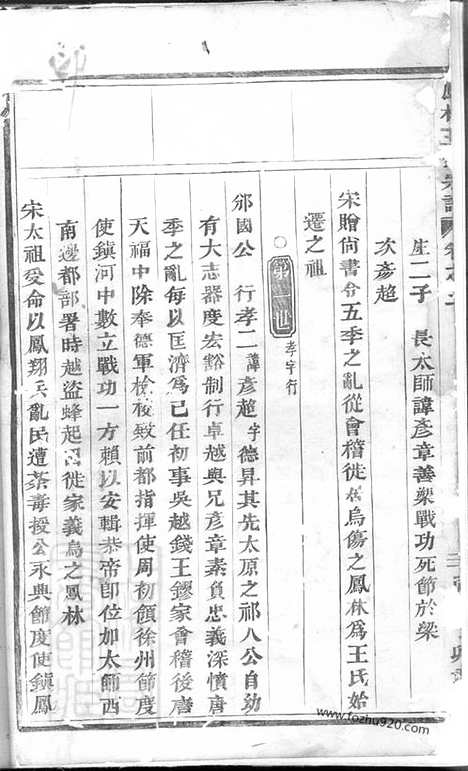 生二子　長太師諱彥章善槊戰功死節於梁
次彥超
宋贈尚書令五季之亂從會稽徙居烏傷之鳳林爲王氏始
遷之祖
○第一世 孝字行
邠國公　行孝二諱彥超字德昇其先太原之祁人公自幼
有大志器度宏豁制行卓越與兄彥章素負忠義深憤唐
季之亂每以匡濟爲己任初事吳越錢王鏐家會稽後唐
天福中除奉德軍檢校致前都指揮使周初領徐州節度
使鎮河中數立戰功一方頼以安輯恭帝卽位加太師西
南邊都部署時越盜蜂起召徙家義烏之鳳林
宋太祖受命以鳳翔兵亂民遭荼毒授公永興節度使鎮鳳
www.fozhu920.com